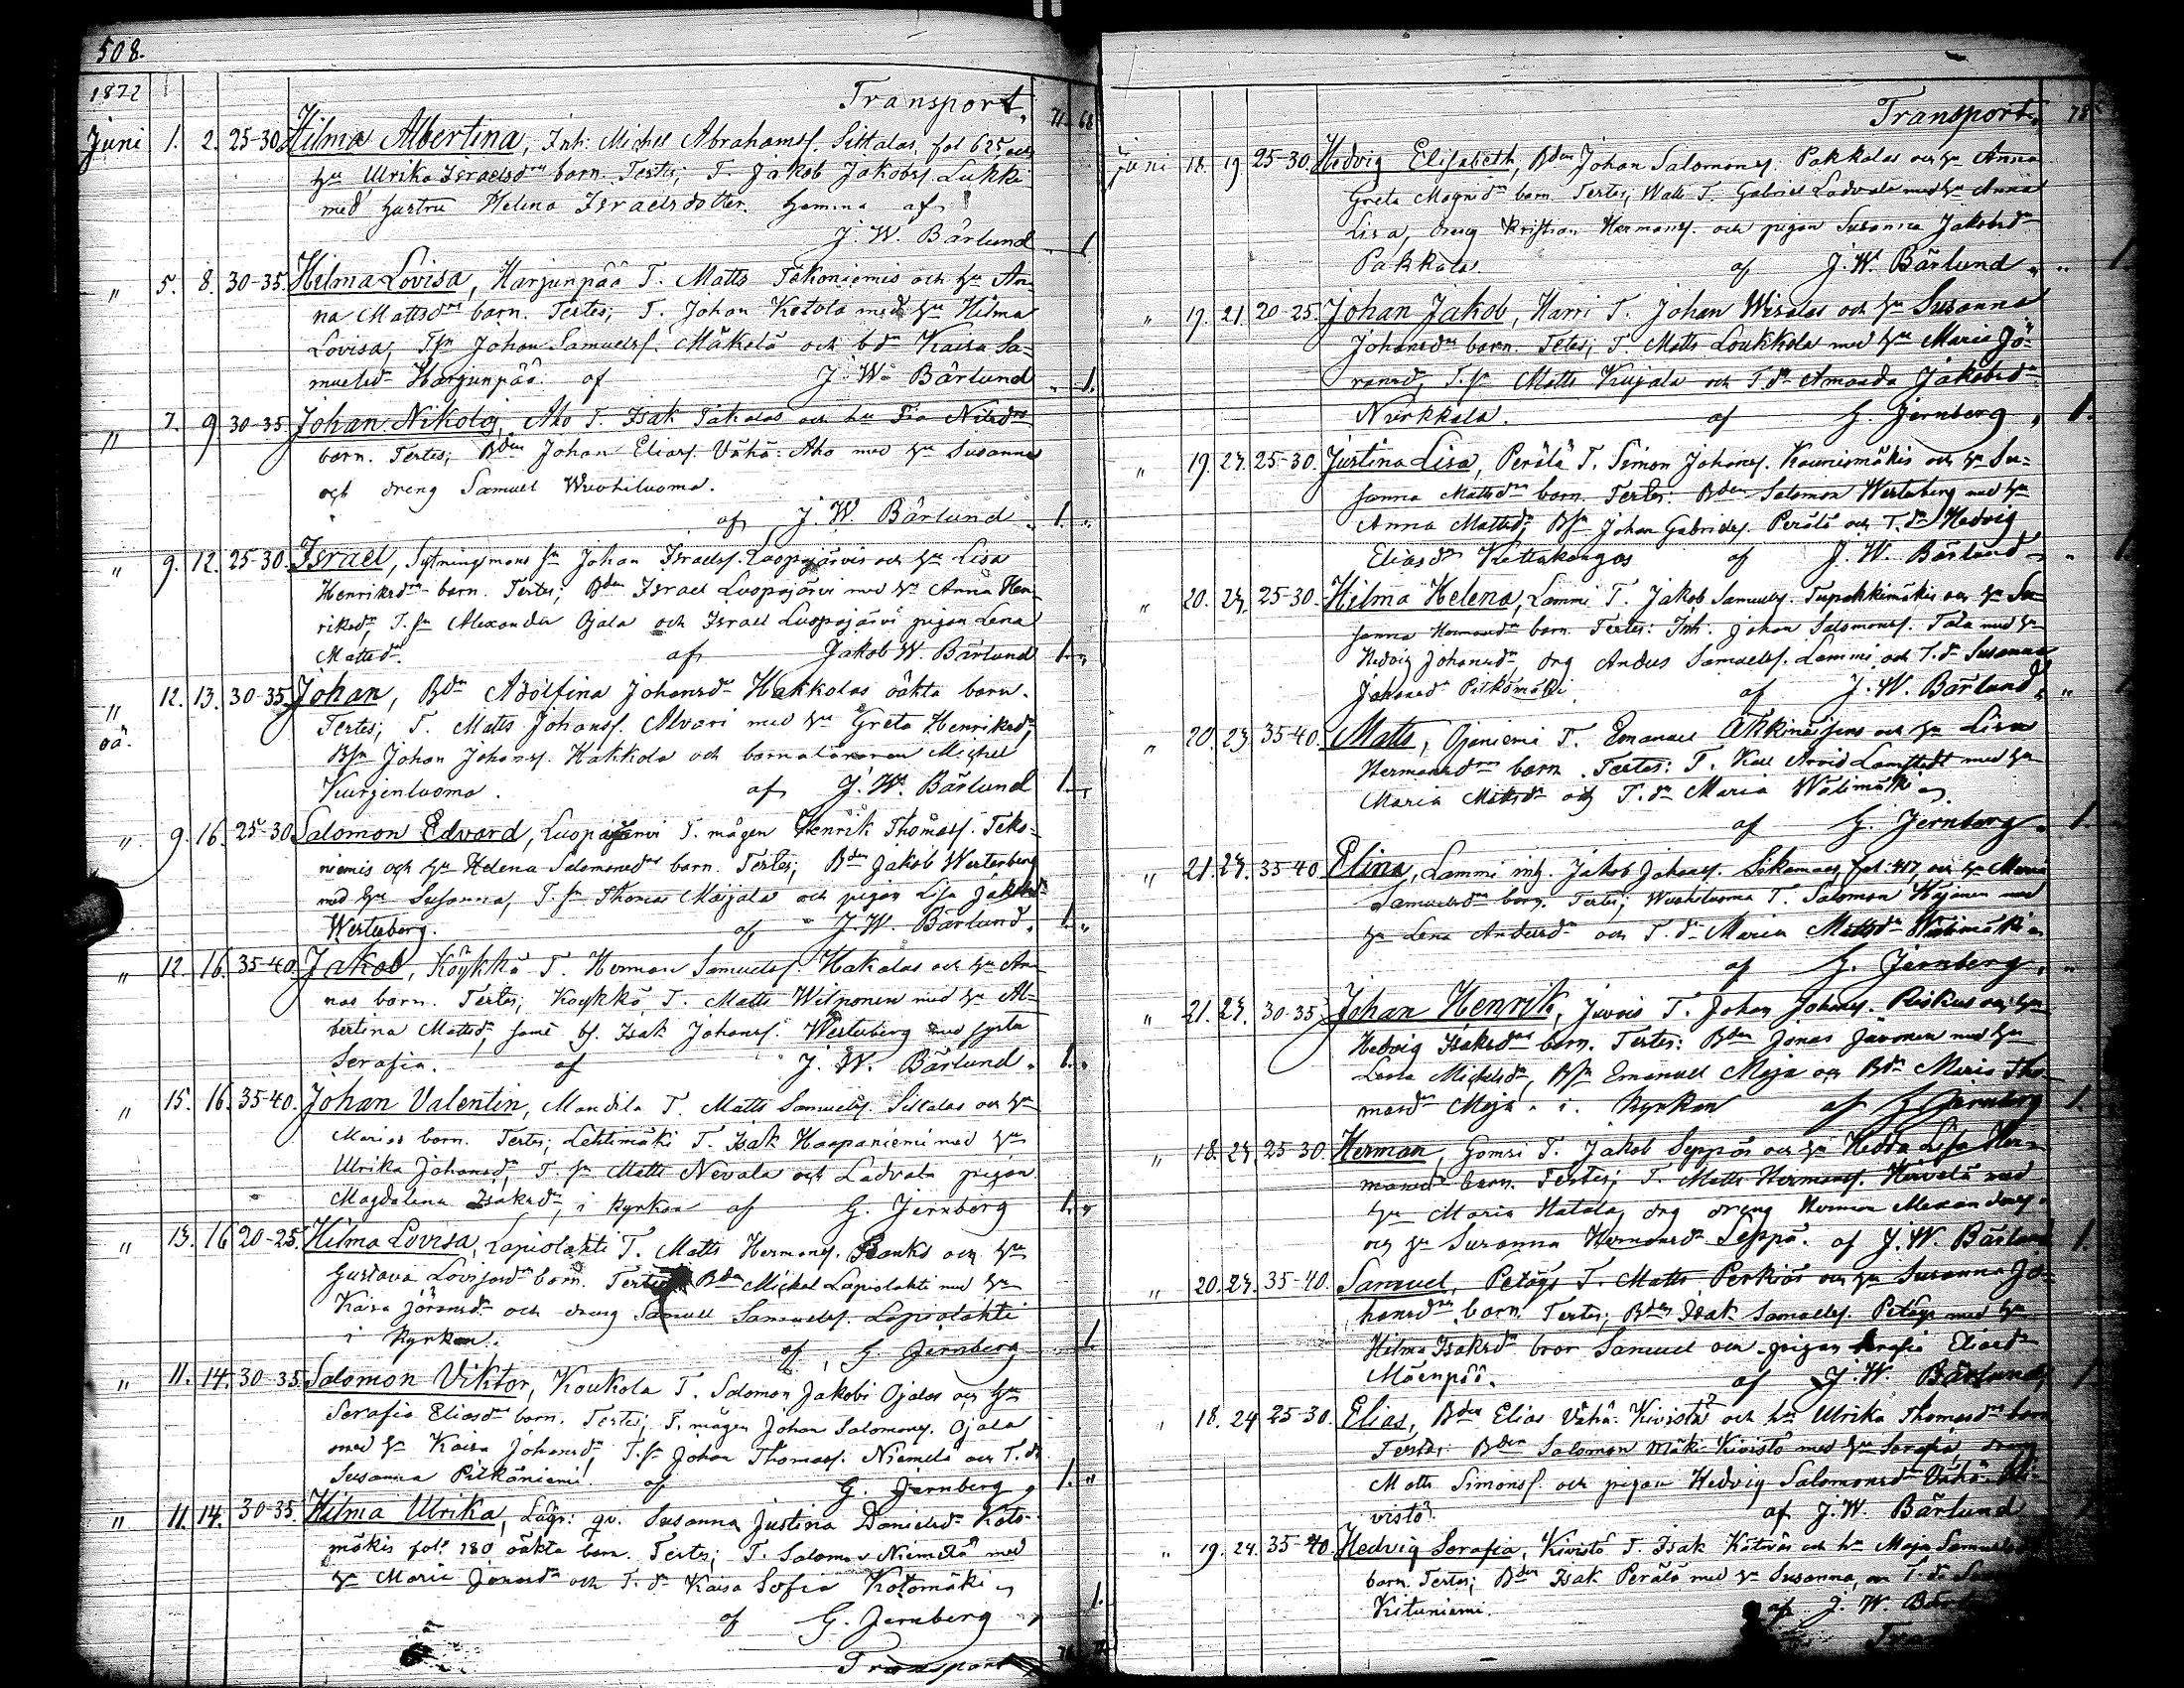 508.
1872
Transport. 71. 68
Juni 1. 2. 25-30 Hilma Albertina, Inh: Michel Abrahamsf. Sillalas, fol 625, och
hu Ulrika Israelsdrs barn. Testes; T. Jakob Jakobsf. Lukki
med hustru Helena Israelsdotter. Hemma af
J. W. Bärlund 1
" 5. 8. 30-35. Hilma Lovisa, Harjunpää T. Matts Tekoniemis och hu An-
na Mattsdrs barn. Testes; T. Johan Ketola med hu Hilma
Lovisa, Tsn Johan Samuelsf. Mäkelä och bdr Kaisa Sa-
muelsdr Harjunpää. af J. W. Bärlund " 1.
" 7. 9 30-35. Johan Nikolaj, Aho T. Isak Takalas och hu Fia Nilsdrs
barn. Testes; Bden Johan Eliasf. Vähä-Aho med hu Susanna
och dreng Samuel Wuohiluoma.
af J. W. Bärlund 1. "
" 9. 12. 25-30. Israel, Sytningmans sn Johan Israelsf. Luopajärvis och hu Lisa
Henriksdrs barn. Testes; Bden Israel Luopajärvi med hu Anna Hen-
riksdr, T. sn Alexander Ojala och Israel Luopajärvi pigan Lena
Mattsdr. af Jakob W. Bärlund 1. "
" 12. 13. 30-35. Johan, Bdr Adolfina Johansdr Hakkolas oäkta barn.
oä. Testes; T. Matts Johansf. Alvari med hu Greta Henriksdr,
Bsn Johan Johansf. Hakkola och barnaläraren Michel
Kurjenluoma. af J. W. Bärlund 1. "
" 9. 16. 25-30 Salomon Edvard, Luopajärvi T. mågen Henrik Thomasf. Teko-
niemis och hu Helena Salomonsdrs barn. Testes; Bden Jakob Westerberg
med hu Susanna, T. sn Thomas Marjala och pigan Lisa Jakobsdr
Westerberg. af J. W. Bärlund. 1. "
" 12. 16. 35-40. Jakob, Köykkä T. Herman Samuelsf. Hakalas och hu An-
nas barn. Testes; Köykkä T. Matts Wilponen med hu Al-
bertina Mattsdr, samt bf. Isak Johansf. Westerberg med syster
Serafia. af J. W. Bärlund. 1. "
" 15. 16. 35-40. Johan Valentin, Mandila T. Matts Samuelsf. Sillalas och hu
Marias barn. Testes; Lehtimäki T. Isak Haapaniemi med hu
Ulrika Johansdr, T. sn Matts Nevala och Ladvala pigan
Magdalena Isaksdr, i kyrkan af G. Jernberg 1. "
" 13. 16 20-25. Hilma Lovisa, Lapiolahti T. Matts Hermansf. Ranks och hu
Gustava Lovisas barn. Testes Bden Mickel Lapiolahti med hu
Kaisa Jöransdr och dreng Samuel Samuelsf. Lapiolahti
i kyrkan. af G. Jernberg 1
" 11. 14. 30-35. Salomon Viktor, Koukola T. Salomon Jakobi Ojalas och hu
Serafia Eliasdrs barn. Testes; T. mågen Johan Salomonsf. Ojala
med hu Kaisa Johansdr, T. sn Johan Thomasf. Niemelä och T. dr
Susanna Pitkäniemi. af G. Jernberg 1. "
" 11. 14. 30-35. Hilma Ulrika, Lägr: qv. Susanna Justina Danielsdr Koto-
mäkis fol. 180 oäkta barn. Testes; T. Salomon Niemelä med
hu Maria Jonasdr och T. dr Kaisa Sofia Kotomäki
af G. Jernberg 1.
Transport
Transport. 78
Juni 18. 19. 25-30. Hedvig Elisabeth, Bden Johan Salomonsf. Pakkalas och hu Anna
Greta Magnidrs barn. Testes; Walli T. Gabriel Ladvala med hu Anna
Lisa, dreng Kristian Hermansf. och pigan Susanna Jakobsdr
Pakkala. af J. W. Bärlund " 1.
" 19. 21. 20-25. Johan Jakob, Harri T. Johan Wisalas och hu Susanna
Johansdrs barn. Testes; T. Matts Loukkola med hu Maria Jö-
ransdr, T. sn Matts Kujala och T. dr Amanda Jakobsdr
Nurkkala. af G. Jernberg 1.
" 19. 23. 25-30. Justina Lisa, Perälä T. Simon Johansf. Kaunismäkis och hu Su-
sanna Mattsdrs barn. Testes: Bden Salomon Westerberg med hu
Anna Mattsdr, Bsn Johan Gabrielsf. Perälä och T. dr Hedvig
Eliasdr Viettakangas af J. W. Bärlund " 1.
" 20. 23. 25-30. Hilma Helena, Lammi T. Jakob Samuelsf. Tupakkimäkis och hu Su-
sanna Hermansdrs barn. Testes: Inh: Johan Salomonsf. Tala med hu
Hedvig Johansdr, drg Anders Samuelsf. Lammi och T. dr Susanna
Johansdr Pitkämäki af J. W. Bärlund "
" 20. 23. 35-40. Matts, Ojaniemi T. Emanuel och hu Lisa
Hermansdrs barn. Testes: T. Karl Arvid Lamstedt med hu
Maria Mattsdr och T. dr Maria Wälimäki
af G. Jernberg. 1.
" 21. 23. 35-40 Elina, Lammi inh. Jakob Johansf. Sikamaas, fol. 417, och hu Maria
Samuelsdrs barn. Testes; Wuohiluoma T. Salomon Kojanen med
hu Lena Andersdr och T. dr Maria Mattsdr Wälimäki
af G. Jernberg. "
" 21. 23. 30-35 Johan Henrik, Juvois T. Johan Johansf. Riskus och hu
Hedvig Isaksdrs barn. Testes: Bden Jonas Juvonen med hu
Lovisa Michelsdr, Bsn Emanuel Moja och Bdr Maria Tho-
masdr Moja. i. kyrkan af G. Jernberg 1.
" 18. 23. 25-30. Herman, Gomsi T. Jakob Seppäs och hu Hedda Lisa Her-
mansdrs barn. Testes; T. Matts Hermansf. Hirvelä med
hu Maria Hatala, drg dreng Herman Alexandersf.
och hu Susanna Hermansdr Seppä. af J. W. Bärlund 1.
" 20. 23. 35-40. Samuel, Petäys T. Matts Perkiös och hu Susanna Jo-
hansdrs barn. Testes; Bden Isak Samuelsf. Petäys med hu
Hilma Isaksdr, bror Samuel och pigan Serafia Eliasdr
Mäenpää. af J. W. Bärlund 1
" 18. 24 25-30. Elias, Bden Elias Vähä-Kivistö och hu Ulrika Thomasdrs barn
Testes: Bden Salomon Mäki-Kivistö med hu Serafia, dreng
Matts Simonsf. och pigan Hedvig Salomonsdr Vähä-Ki-
vistö. af J. W. Bärlund
" 19. 24. 35-40. Hedvig Serafia, Kivistö T. Isak Kätwäs och hu Maja Samuelsdrs
barn. Testes; Bden Isak Perälä med hu Susanna, och T. dr
Kituniemi. af J. W.